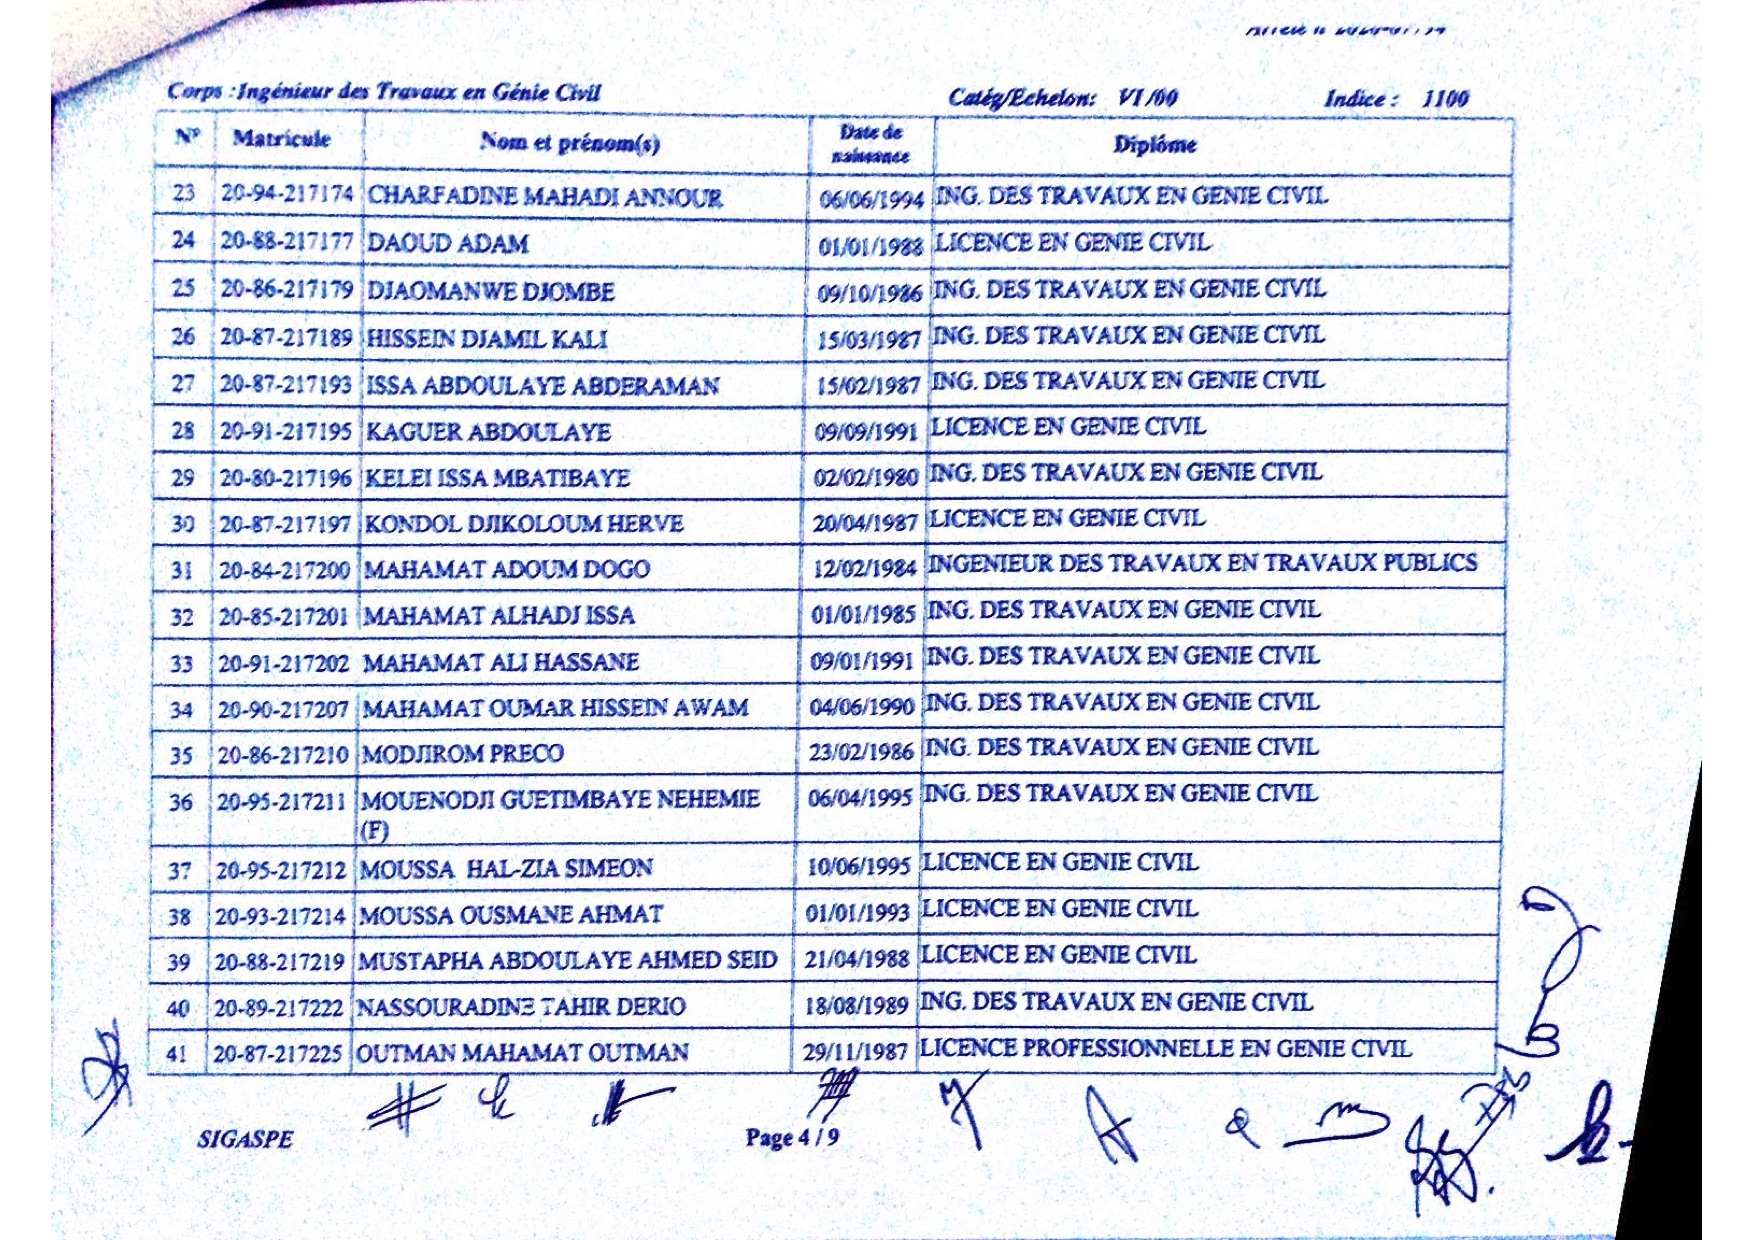 Corps : Ingénieur des Travaux en Génie Civil Catég/Echelon: VI /00 Indice : 1100
N° Matricule Nom et prénom(s) Date de naissance Diplôme
23 20-94-217174 CHARFADINE MAHADI ANNOUR 06/06/1994 ING. DES TRAVAUX EN GENIE CIVIL
24 20-88-217177 DAOUD ADAM 01/01/1988 LICENCE EN GENIE CIVIL
25 20-86-217179 DJAOMANWE DJOMBE 09/10/1986 ING. DES TRAVAUX EN GENIE CIVIL
26 20-87-217189 HISSEIN DJAMIL KALI 15/03/1987 ING. DES TRAVAUX EN GENIE CIVIL
27 20-87-217193 ISSA ABDOULAYE ABDERAMAN 15/02/1987 ING. DES TRAVAUX EN GENIE CIVIL
28 20-91-217195 KAGUER ABDOULAYE 09/09/1991 LICENCE EN GENIE CIVIL
29 20-80-217196 KELEI ISSA MBATIBAYE 02/02/1980 ING. DES TRAVAUX EN GENIE CIVIL
30 20-87-217197 KONDOL DJIKOLOUM HERVE 20/04/1987 LICENCE EN GENIE CIVIL
31 20-84-217200 MAHAMAT ADOUM DOGO 12/02/1984 INGENIEUR DES TRAVAUX EN TRAVAUX PUBLICS
32 20-85-217201 MAHAMAT ALHADJ ISSA 01/01/1985 ING. DES TRAVAUX EN GENIE CIVIL
33 20-91-217202 MAHAMAT ALI HASSANE 09/01/1991 ING. DES TRAVAUX EN GENIE CIVIL
34 20-90-217207 MAHAMAT OUMAR HISSEIN AWAM 04/06/1990 ING. DES TRAVAUX EN GENIE CIVIL
35 20-86-217210 MODJIROM PRECO 23/02/1986 ING. DES TRAVAUX EN GENIE CIVIL
36 20-95-217211 MOUENODJI GUETIMBAYE NEHEMIE 06/04/1995 ING. DES TRAVAUX EN GENIE CIVIL
(F)
37 20-95-217212 MOUSSA HAL-ZIA SIMEON 10/06/1995 LICENCE EN GENIE CIVIL
38 20-93-217214 MOUSSA OUSMANE AHMAT 01/01/1993 LICENCE EN GENIE CIVIL
39 20-88-217219 MUSTAPHA ABDOULAYE AHMED SEID 21/04/1988 LICENCE EN GENIE CIVIL
40 20-89-217222 NASSOURADINE TAHIR DERIO 18/08/1989 ING. DES TRAVAUX EN GENIE CIVIL
41 20-87-217225 OUTMAN MAHAMAT OUTMAN 29/11/1987 LICENCE PROFESSIONNELLE EN GENIE CIVIL
SIGASPE Page 4 / 9